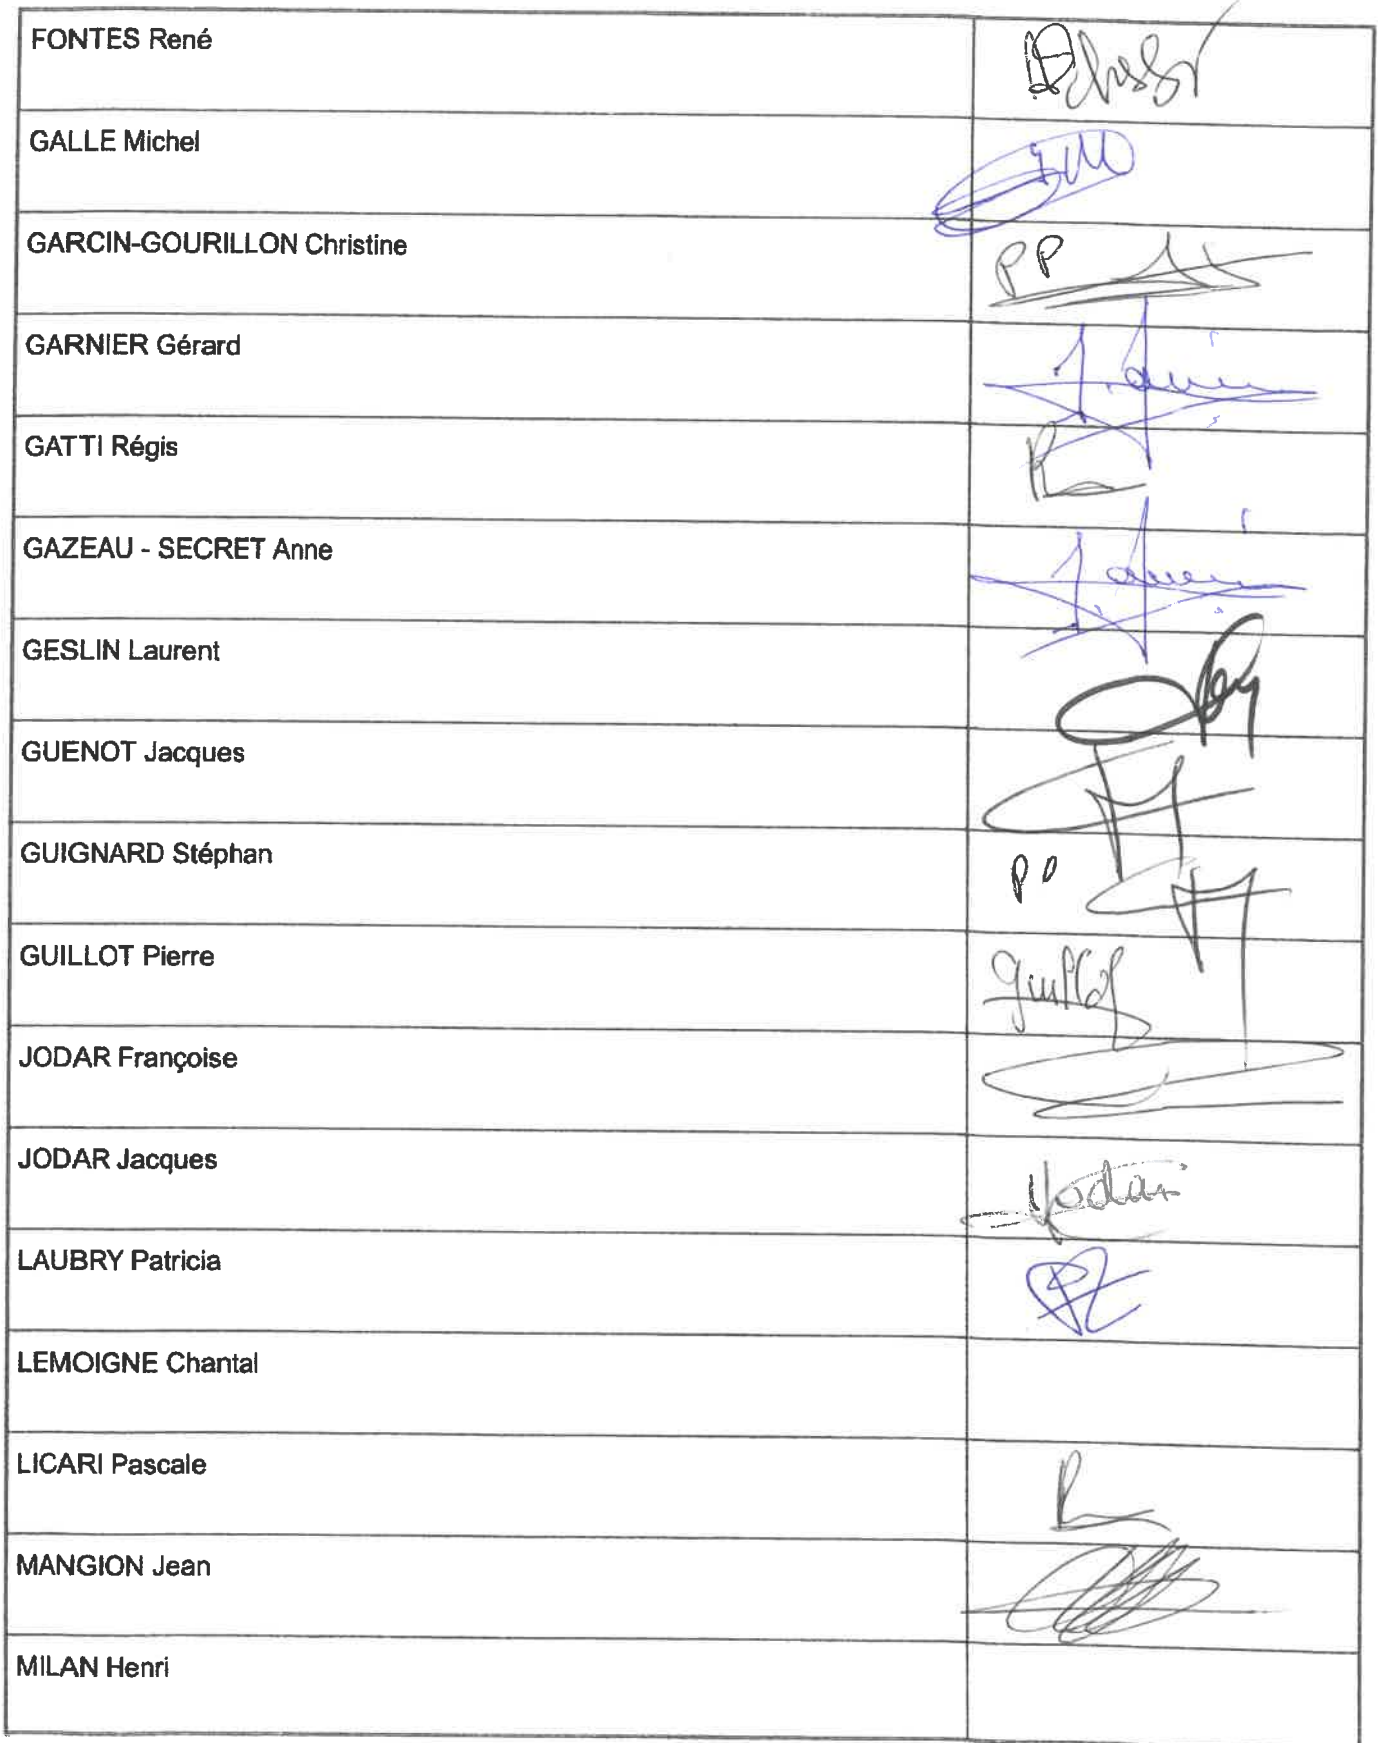 FONTES René
GALLE Michel
GARCIN-GOURILLON Christine
PP
GARNIER Gérard
GATTI Régis
GAZEAU - SECRET Anne
GESLIN Laurent
GUENOT Jacques
GUIGNARD Stéphan
PP
GUILLOT Pierre
JODAR Françoise
JODAR Jacques
LAUBRY Patricia
LEMOIGNE Chantal
LICARI Pascale
MANGION Jean
MILAN Henri